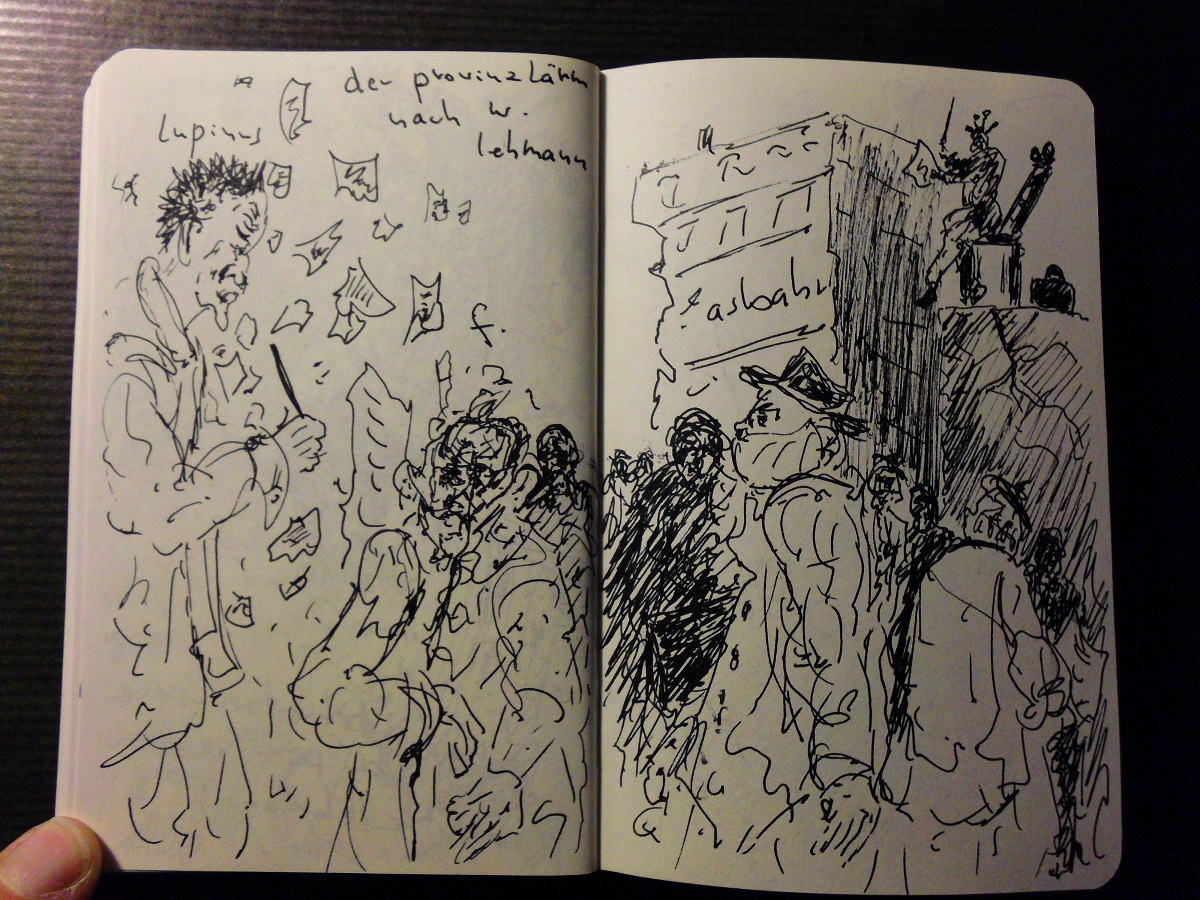 der provinzlärm
nach w.
lehmann
lupinus
f.